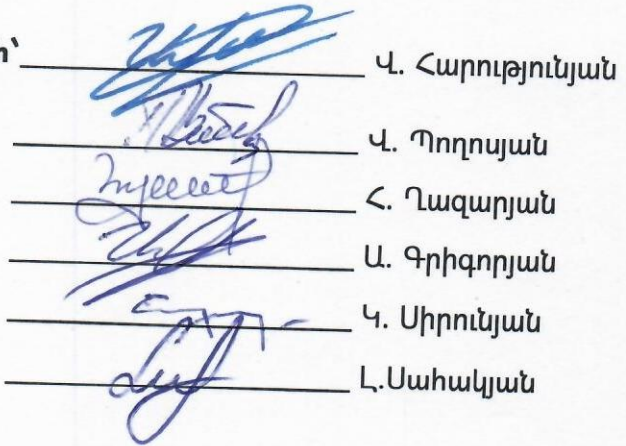 Վ. Հարությունյան
Վ. Պողոսյան
Հ. Ղազարյան
Ա. Գրիգորյան
Կ. Սիրունյան
Լ.Սահակյան